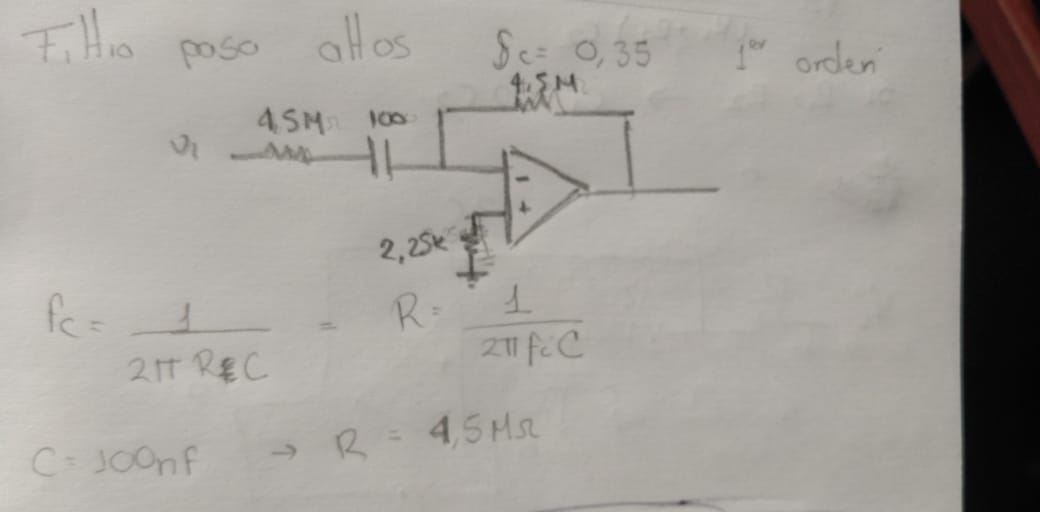 Filtro paso altos fc= 0,35 1er orden
4,5M
4,5MΩ 100
Vi
-
+
2,25k
fc = 1 / 2π R C = R = 1 / 2π fc C
C = 100nf → R = 4,5MΩ